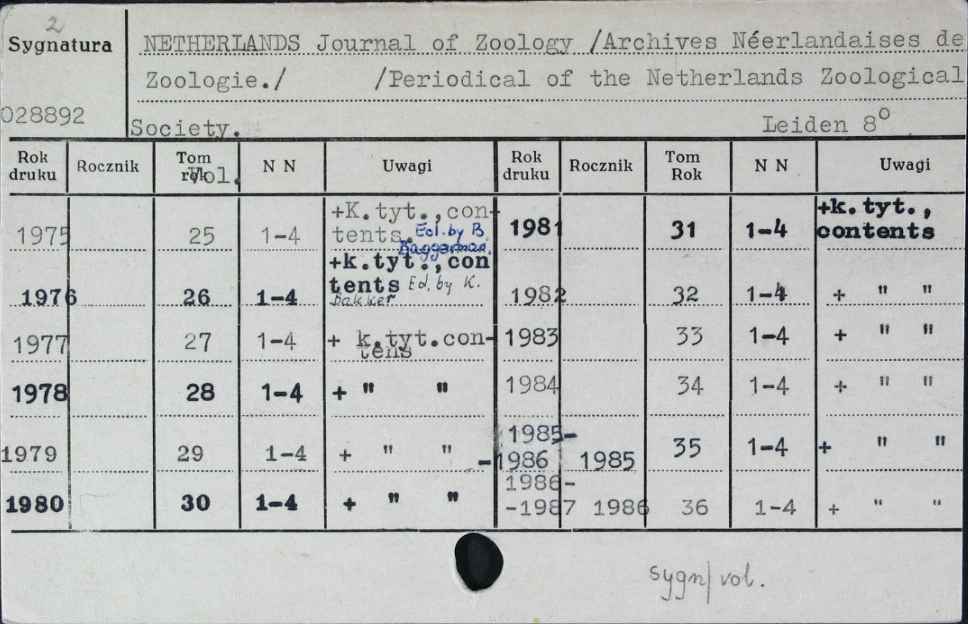 2
Sygnatura NETHERLANDS Journal of Zoology /Archives Néerlandaises de
Zoologie./ /Periodical of the Netherlands Zoological
028892 Society. Leiden 8°
Rok druku Rocznik Tom Vol. N N Uwagi Rok druku Rocznik Tom Rok N N Uwagi
1975 25 1-4 +K.tyt.,con-
tents. Ed. by B.
Baggerman.
1981 31 1-4 +k.tyt.,
contents
1976 26 1-4 +k.tyt.,con
tents Ed. by K.
Bakker
1982 32 1-4 + " "
1977 27 1-4 + k.tyt.con-
tens
1983 33 1-4 + " "
1978 28 1-4 + " " 1984 34 1-4 + " "
1979 29 1-4 + " " 1985-
-1986 1985 35 1-4 + " "
1980 30 1-4 + " " 1986-
-1987 1986 36 1-4 + " "
sygn/vol.